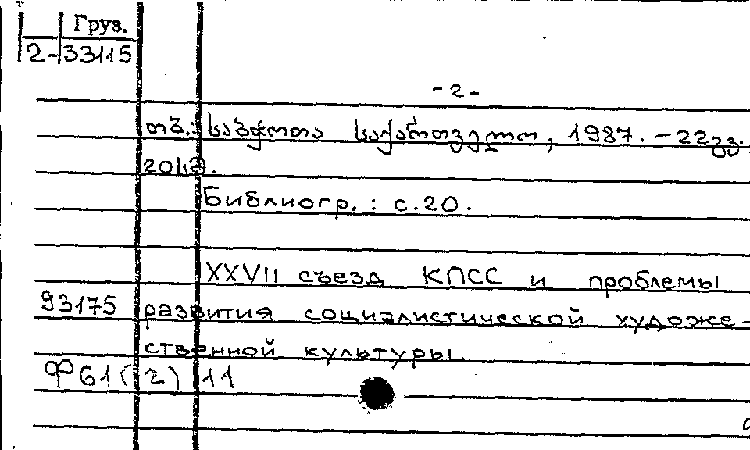 Груз.
2-33115
-2-
თბ.: საბჭოთა საქართველო, 1987. -22გვ.
20სმ.
Библиогр.: с.20.
XXVII съезд КПСС и проблемы
93175 развития социалистической художе-
ственной культуры.
Ф61(2)11